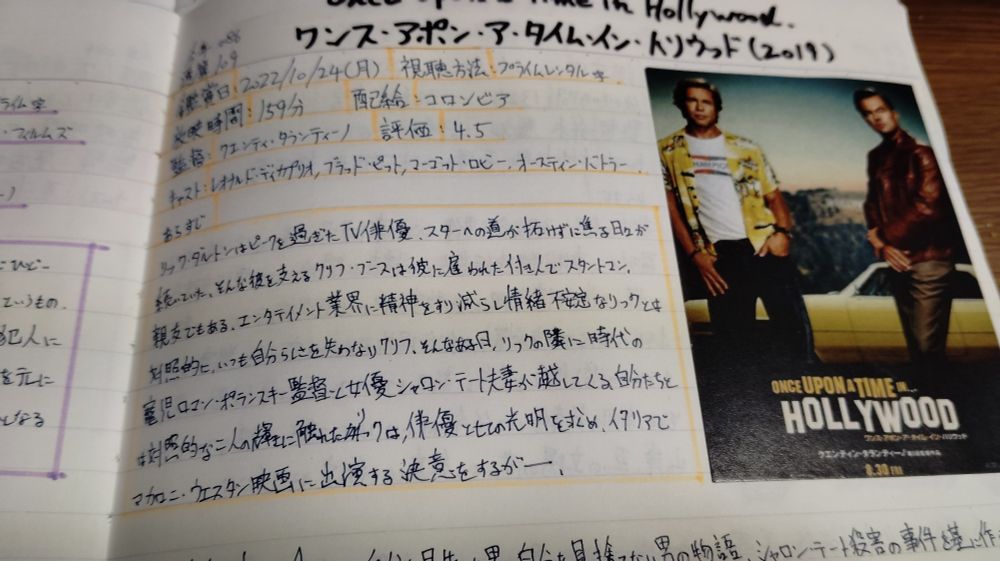 Once Upon a Time in Hollywood.
ワンス・アポン・ア・タイム・イン・ハリウッド(2019)
通算 109
鑑賞日:2022/10/24(月) 視聴方法:プライムレンタル字
放映時間:159分 配給:コロンビア
監督:クエンティ・タランティーノ 評価:4.5
キャスト:レオナルド・ディカプリオ,ブラッド・ピット,マーゴット・ロビー,オースティン・バトラー
あらすじ
リック・ダルトンはピークを過ぎたTV俳優、スターへの道が拓けずに焦る日々が
続いていた、そんな彼を支えるクリフ・ブースは彼に雇われた付き人でスタントマン、
親友でもある、エンタテイメント業界に精神をすり減らし情緒不安定なリックとは
対照的に、いつも自分らしさを失わないクリフ、そんなある日、リックの隣に時代の
寵児ロマン・ポランスキー監督と女優シャロン・テート夫妻が越してくる、自分たちと
は対照的な二人の輝きに触れたリックは、俳優としての光明を求め、イタリアで
マカロニ・ウエスタン映画に出演する決意をするが—.
CHAMPION
ONCE UPON A TIME IN...
HOLLYWOOD
ワンス・アポン・ア・タイム・イン・ハリウッド
クエンティン・タランティーノ
8.30 FRI
ライム字
・フィルムズ
ーノ
ひどー
というもの.
犯人に
を元に
となる
男、自分を見捨てない男の物語、シャロン・テート殺害の事件を基に作